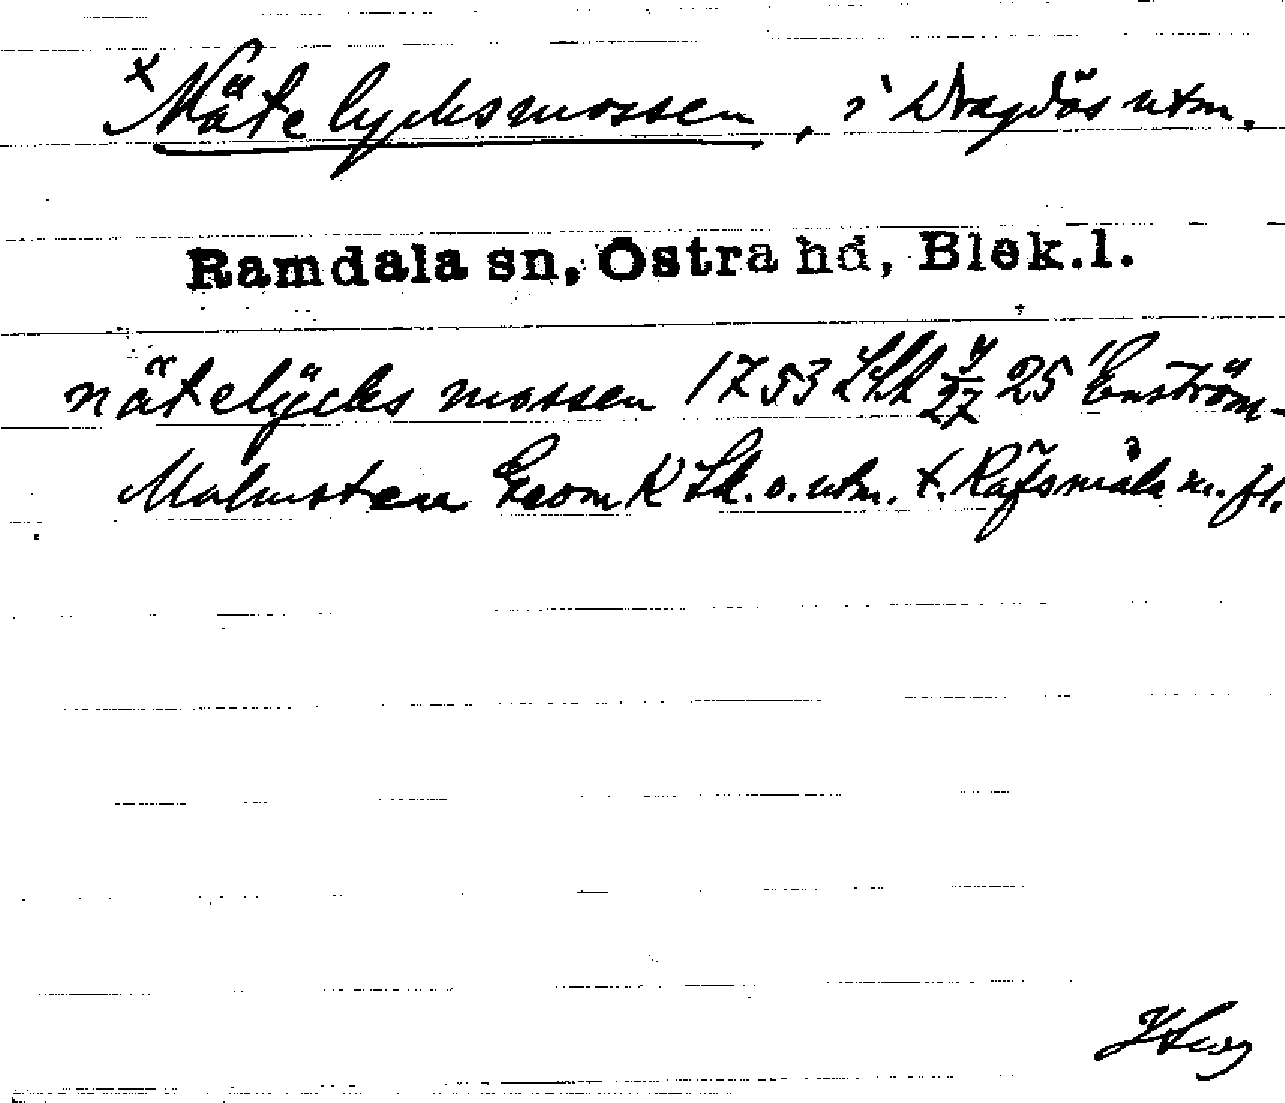 × Mätelycksmossen, i Dragsös utm.
Ramdala sn, Östra hd, Blek.l.
nätelÿcks mossen 1753 LHA 25 Enström-
Malmsten Geom K Sk. o. utm. t. Råfsmåla m. fl.